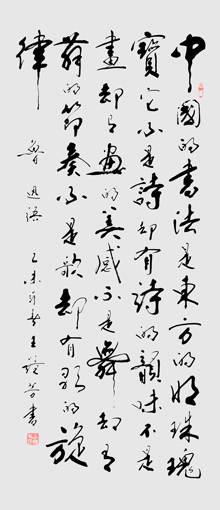 中國的書法是東方的明珠瑰
寶它不是詩却有詩的韻味不是
畫却有畫的美感不是舞却有
舞的節奏不是歌却有歌的旋
律
魯迅語
乙未年王芳書